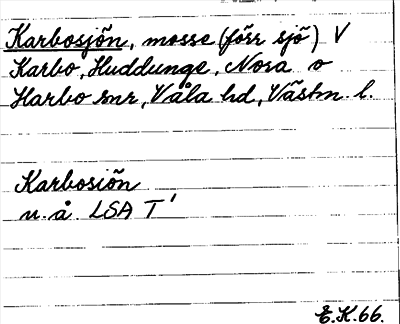 Karbosjön, mosse (förr sjö) V
Karbo, Huddunge, Nora o
Harbo snr, Våla hd, Västm. l.
Karbosiön
u.å. LSA T'
E.K.66.